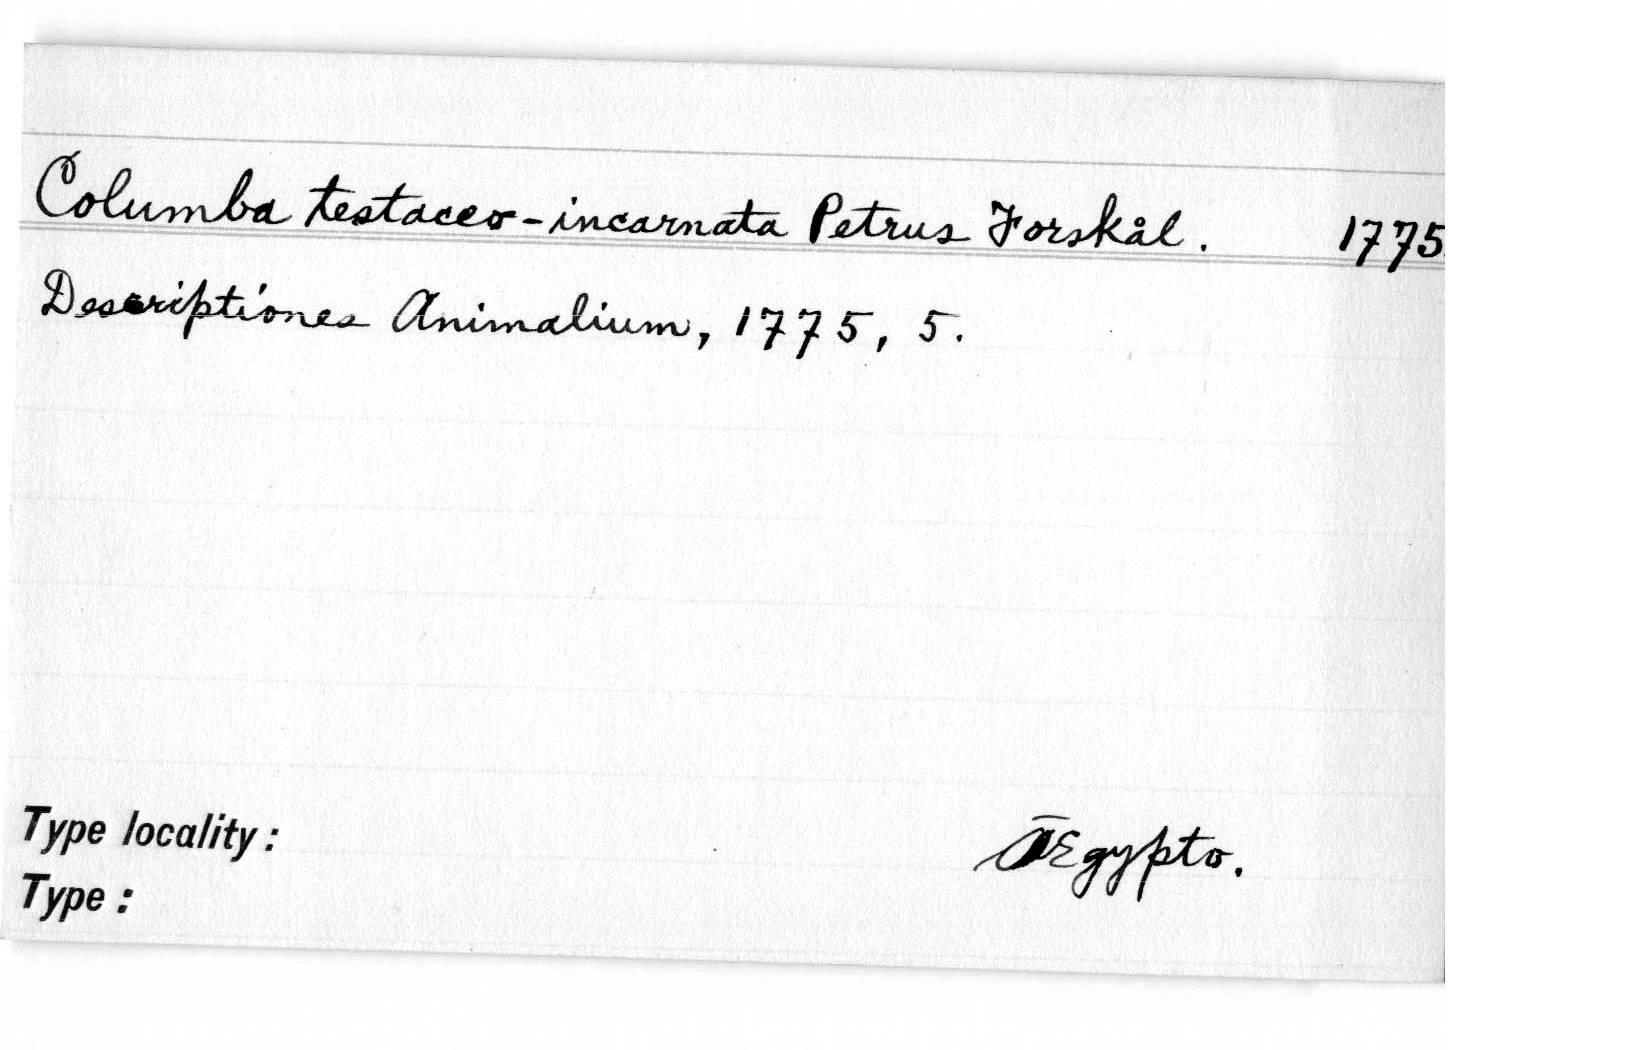 Columba testaceo-incarnata Petrus Forskål. 1775.
Descriptiones Animalium, 1775, 5.
Type locality: Ægypto.
Type: